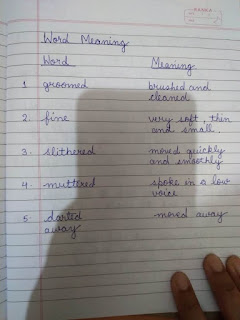 Word Meaning
Word Meaning
1. groomed brushed and
cleaned
2. fine very soft, then
and small.
3. slithered moved quickly
and smoothly
4. muttered spoke in a low
voice
5. darted moved away
away